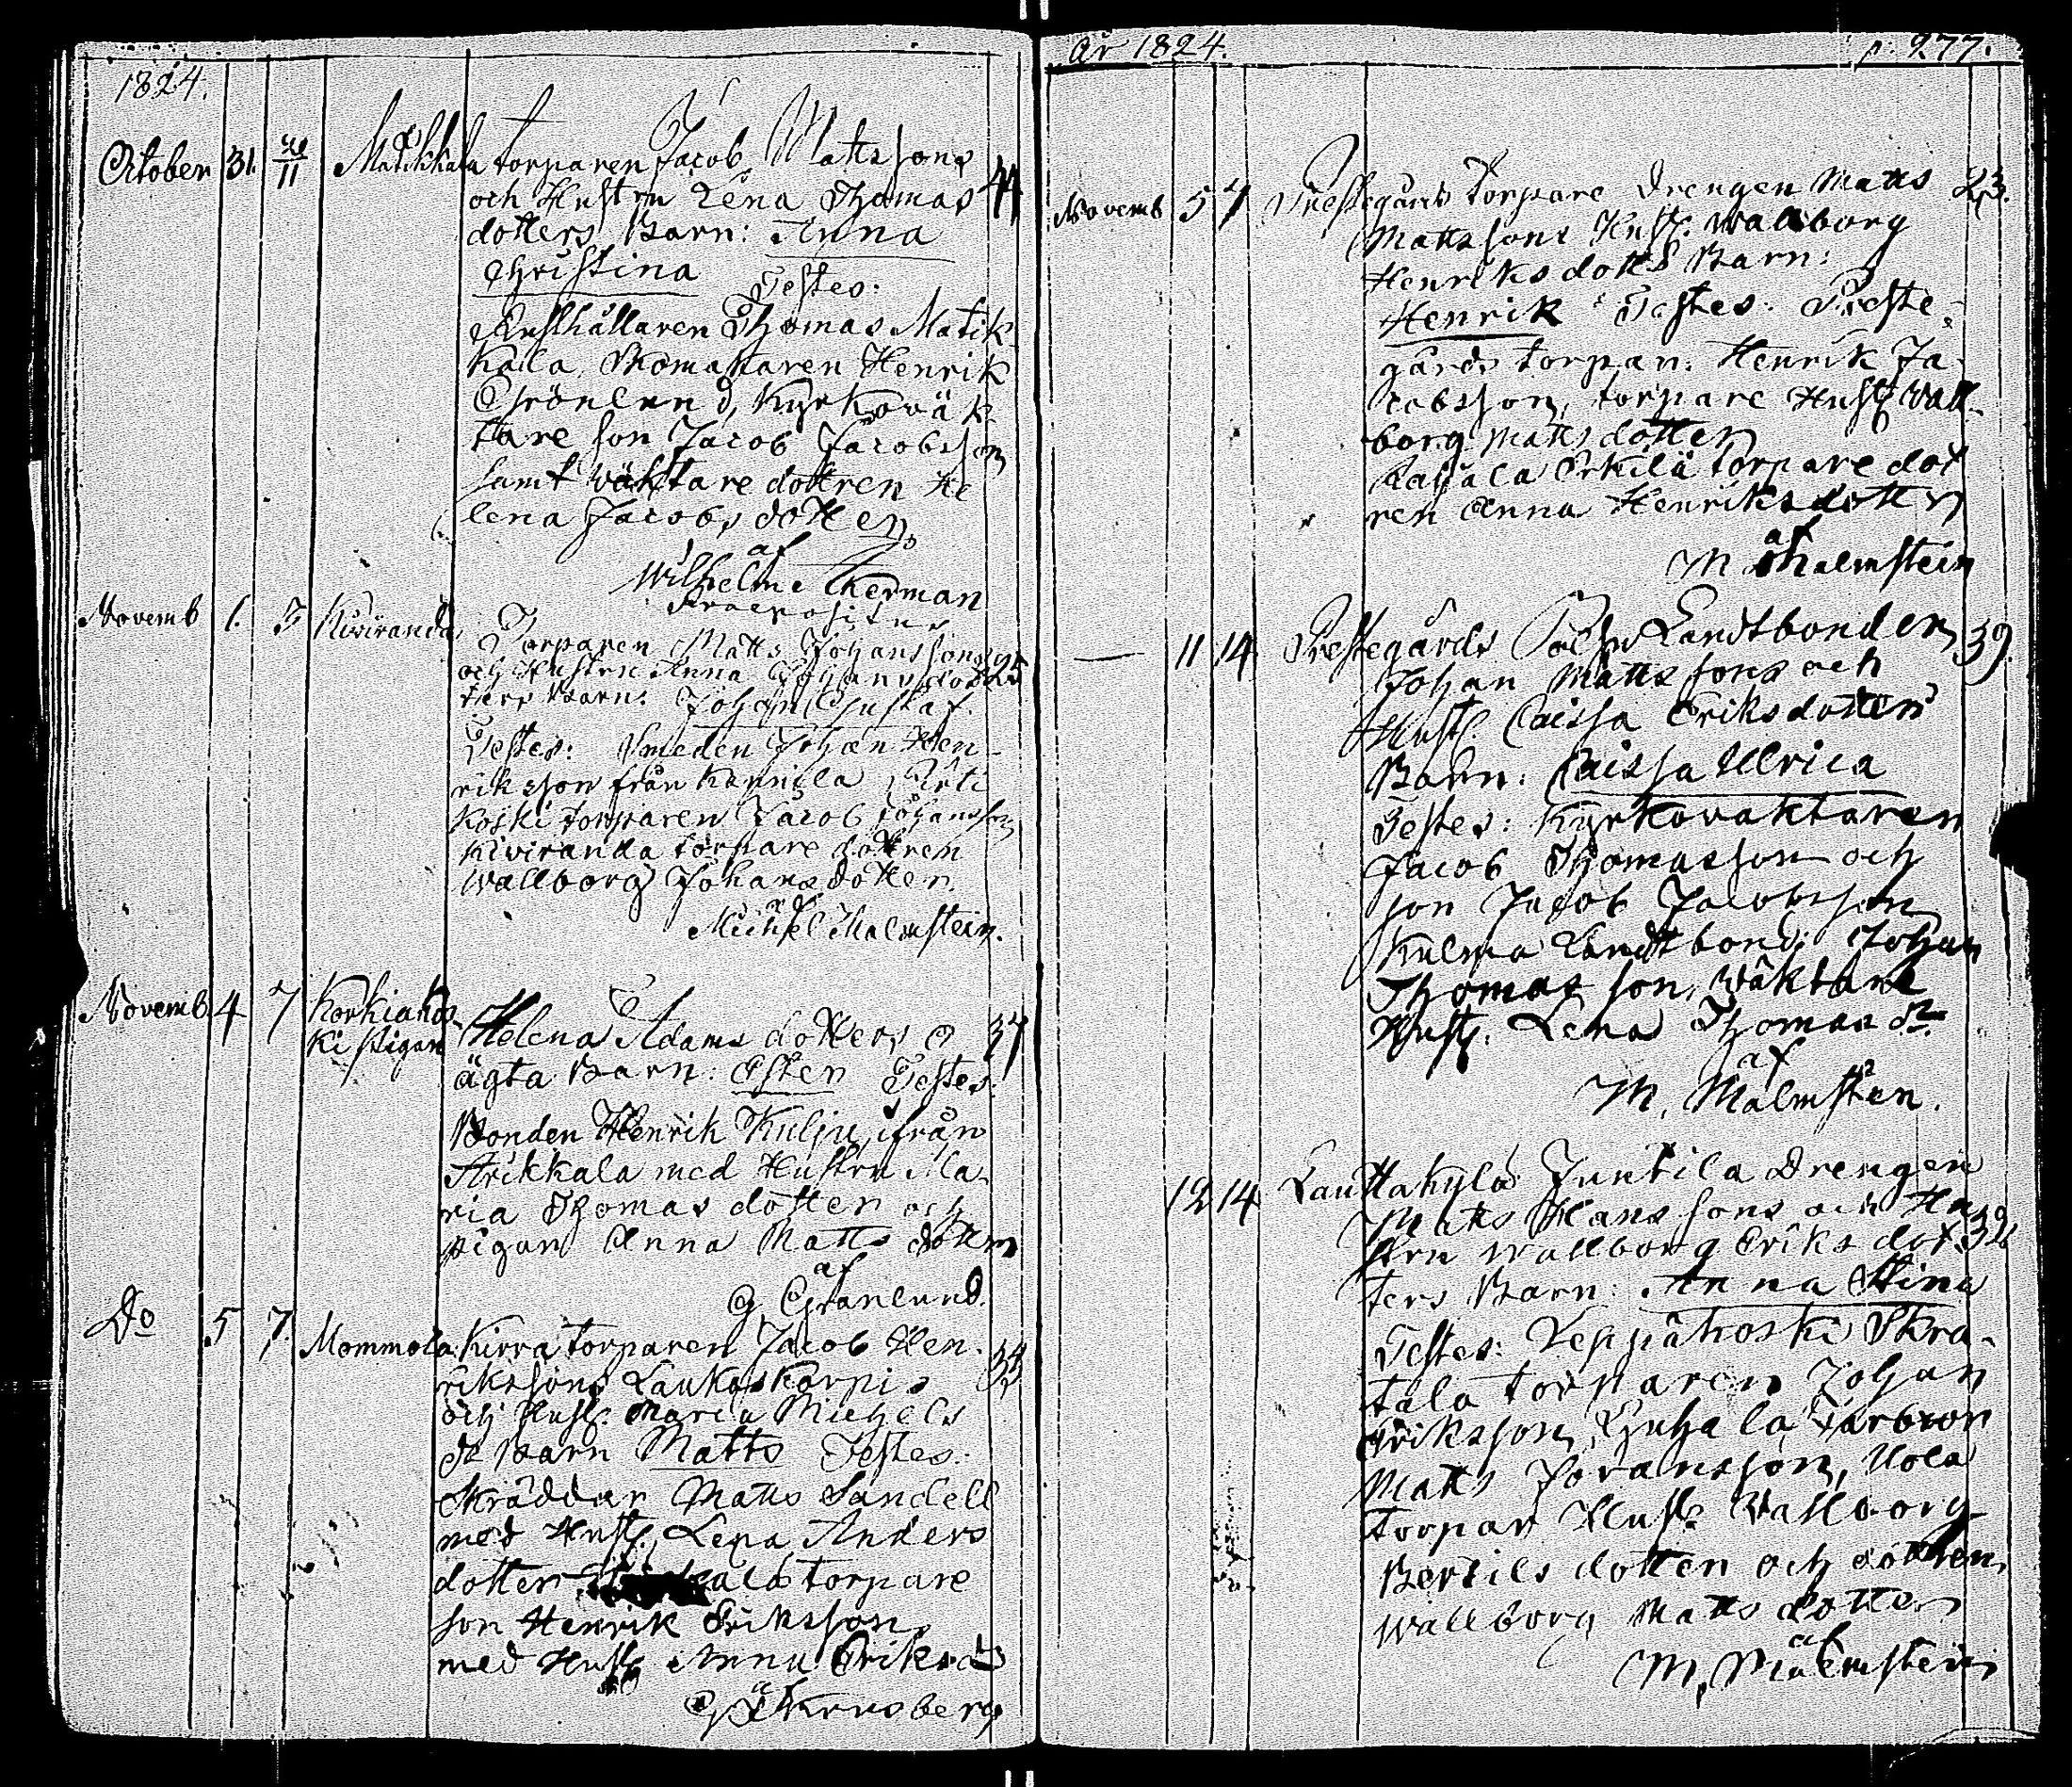 1824.
October 31. 2/11 Matikkala torparen Jacob Mattssons 44
och Hustru Lena Thomas
dotters Barn: Anna
Christina Testes:
Rusthållaren Thomas Matik-
kala, Skomakaren Henrik
Grönlund, Kyrkowäk-
tare son Jacob Jacobsson
samt wäktare dottren He
lena Jacobsdotter
af
Wilhelm Åkerman
Præpositus
Novemb 1. 3 Kiviranda
Torparen Matts Johanssons 25
och Hustru Anna Johansdot
ters Barn: Johan Gustaf.
Testes: Smeden Johan Hen-
riksson från Kannila
koski torparen Jacob Johansson
Kiviranda torpare dottren
Wallborg Johansdotter.
af
Michel Malmstein.
Novemb. 4 7 Korkiakos-
ki Pigan Helena Adamsdotters o 37
ägta Barn: Ester Testes:
Bonden Henrik Kulju ifrån
Arikkala med Hustru Ma-
ria Thomasdotter och
pigan Anna Mattsdotter
af
G Granlund.
Do 5 7. Mommola Kirra torparen Jacob Hen-
rikssons Laukaskorpis 34
och Hust. Maria Michels
dr Barn Matts Testes:
Skräddar Matts Sandell
med Hust. Lena Anders
dotter torpare
son Henrik Eriksson
med Hust. Anna Eriksd
af
År 1824. p. 277.
Novemb 5 7 Prestegårds torpare Drengen Matts 23.
Mattssons Hust. Wallborg
Henriksdotts Barn:
Henrik Testes: Preste-
gårds torpar. Henrik Ja-
cobsson, torpare Hust Wall-
borg Mattsdotter
Erkilä torpare dot
ren Anna Henriksdotter
af
M Malmstein
— 11 14 Prestegårds Landtbonden 39.
Johan Mattssons och
Hust. Caissa Eriksdotters
Barn: Caissa Ulrica
Testes: Kyrkovaktaren
Jacob Thomasson och
son Jacob Jacobsson
Kulma Landtbond. Johan
Thomasson, wäktare
Hust. Lena Thomasdr
af
M. Malmsten.
12 14 Lauttakylä Juntila Drengen
Matts Hanssons och Hu
stru Wallborg Eriksdot 32
ters Barn: Anna Stina
Testes: Leppäkoski Skra-
tala torparen Johan
Eriksson, Farbror
Matts Johansson, Uola
torpar Hust Wallborg
Bertilsdotter och dottren
Wallborg Mattsdotter
af
M. Malmstein